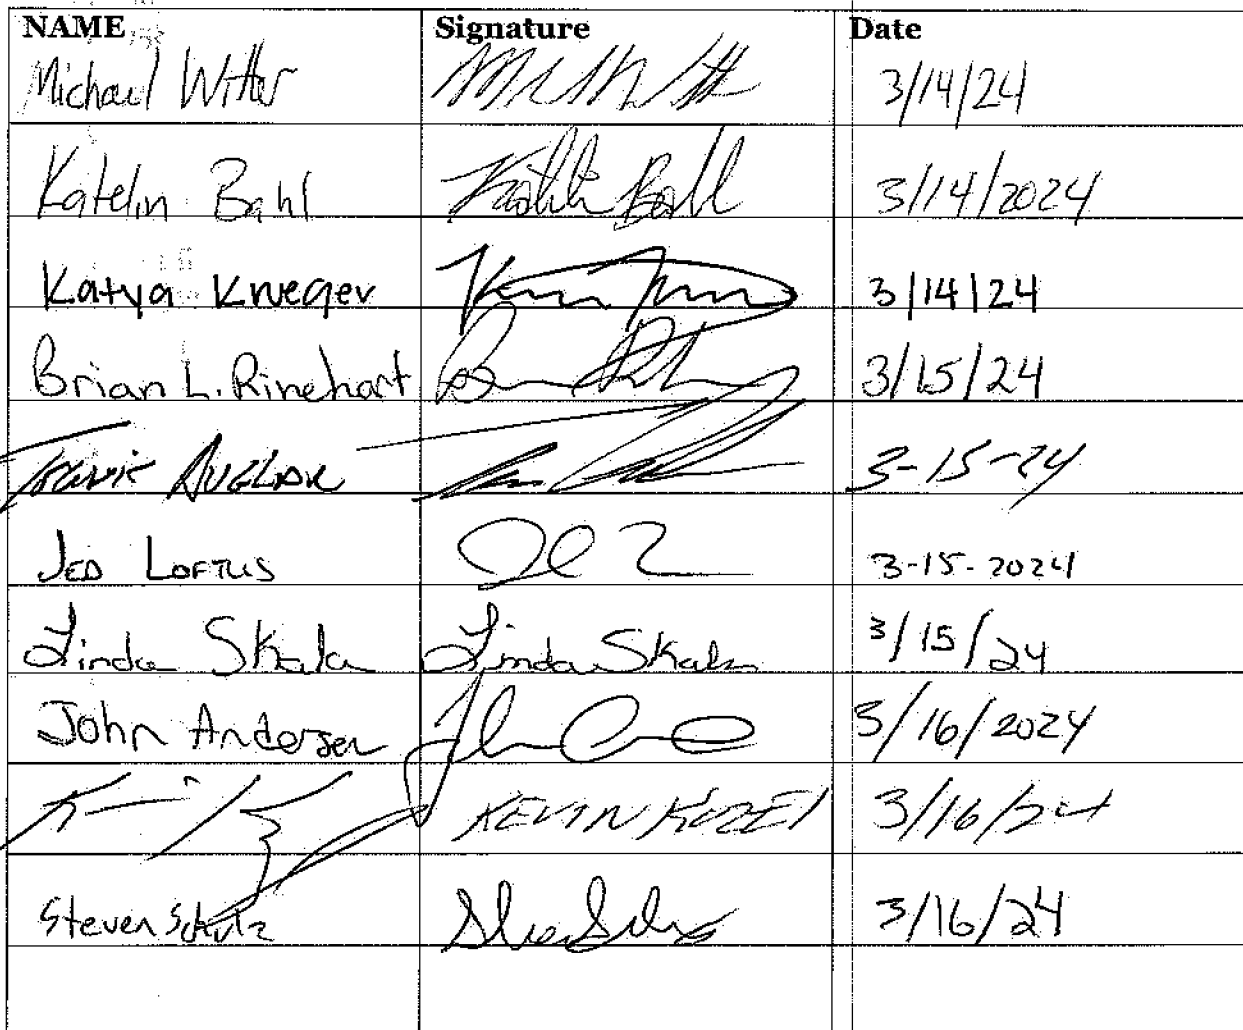 NAME Signature Date
Michael Witter 3/14/24
Katelin Bahl Katelin Bahl 3/14/2024
Katya Krueger 3/14/24
Brian L. Rinehart 3/15/24
3-15-24
JED LOFTUS 3-15-2024
Linda Skala Linda Skala 3/15/24
John Andersen 3/16/2024
KEVIN KOZEL 3/16/24
Steven Schulz 3/16/24